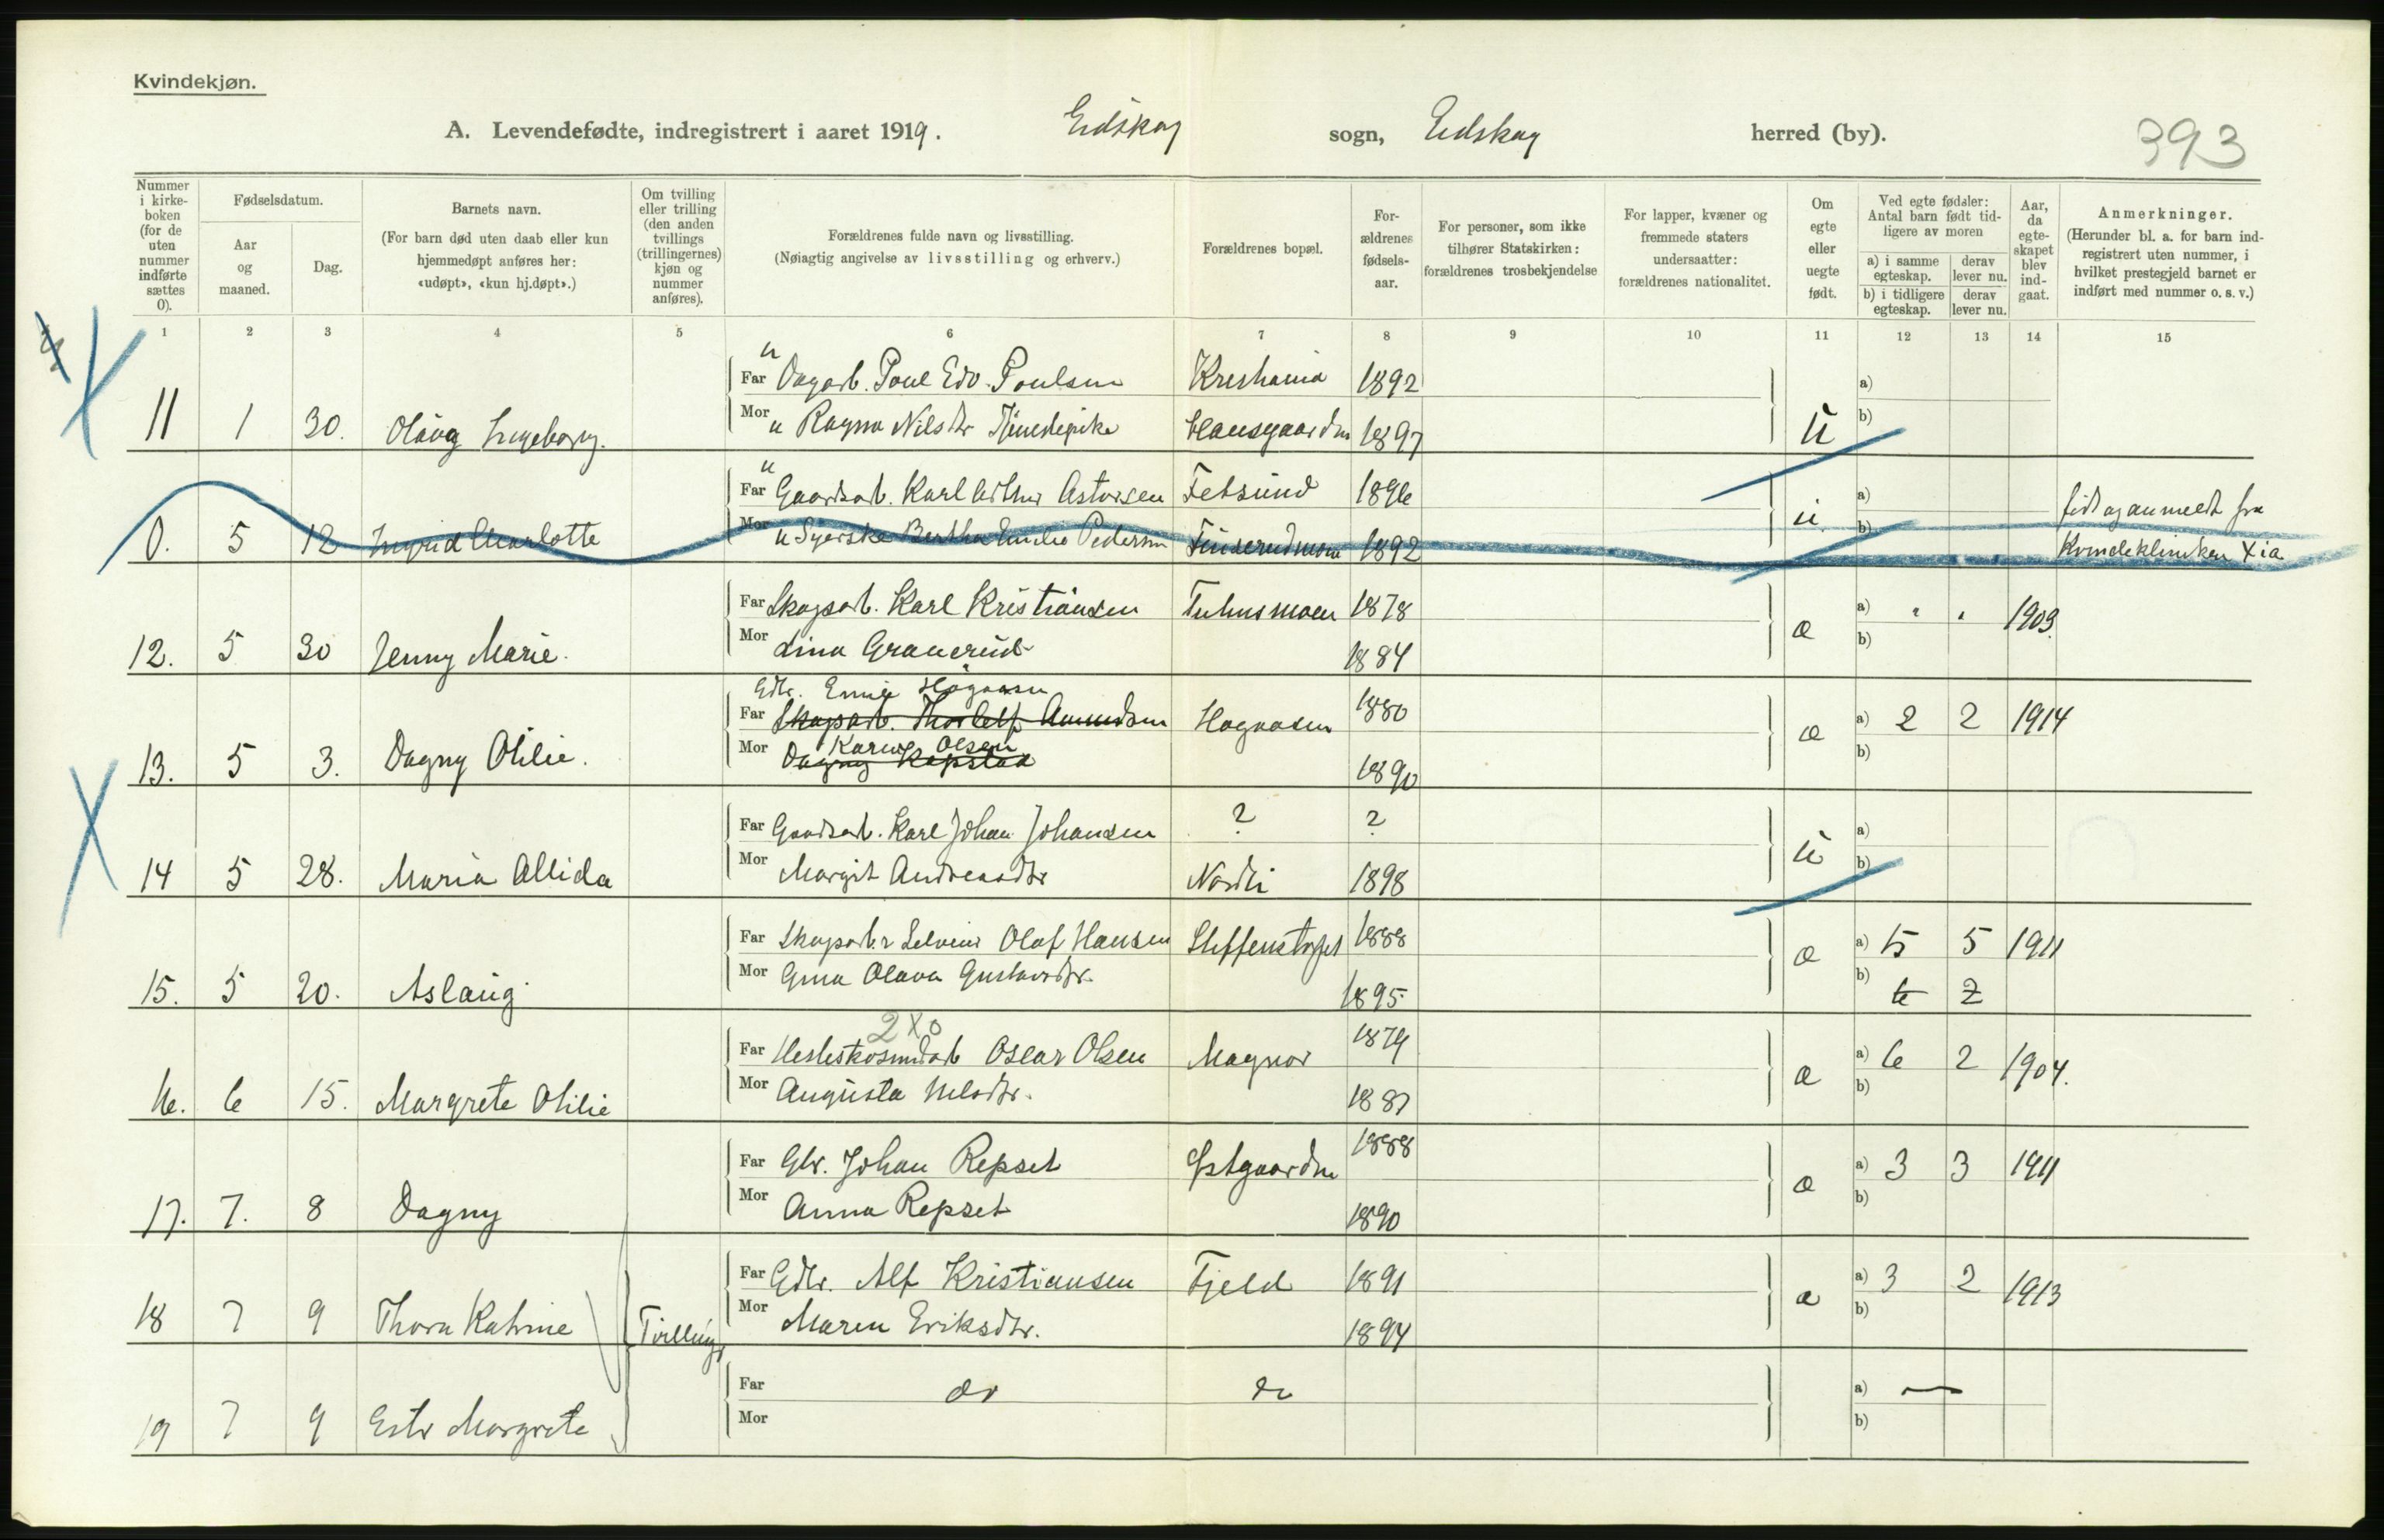 Kvindekjøn.
A. Levendefødte, indregistrert i aaret 1919. Eidskog sogn, Eidskog herred (by). 393
Nummer i kirkeboken (for de uten nummer indførte sættes 0).
Fødselsdatum.
Aar og maaned.
Dag.
Barnets navn.
(For barn død uten daab eller kun hjemmedøpt anføres her: «udøpt», «kun hj.døpt».)
Om tvilling eller trilling (den anden tvillings (trillingernes) kjøn og nummer anføres).
Forældrenes fulde navn og livsstilling.
(Nøiagtig angivelse av livsstilling og erhverv.)
Forældrenes bopæl.
Forældrenes fødselsaar.
For personer, som ikke tilhører Statskirken: forældrenes trosbekjendelse
For lapper, kvæner og fremmede staters undersaatter: forældrenes nationalitet.
Om egte eller uegte født.
Ved egte fødsler: Antal barn født tidligere av moren
a) i samme egteskap. derav lever nu.
b) i tidligere egteskap. derav lever nu.
Aar, da egteskapet blev indgaat.
Anmerkninger.
(Herunder bl. a. for barn indregistrert uten nummer, i hvilket prestegjeld barnet er indført med nummer o. s. v.)
1 2 3 4 5 6 7 8 9 10 11 12 13 14 15
u
Far Dagarb. Poul Edv. Poulsen Kristiania 1892 a)
11 1 30. Olaug Ingeborg. Mor u Ragna Nilsdtr Tjenestepike Hansgaarden 1897 ü b)
u
Far Gaardsarb. Karl Arthur Astorsen Fetsund 1896 a)
0. 5 12 Ingrid Charlotte Mor u Syerske Bertha Emilie Pedersen 1892 ü b) Kvindeklinikken Xia
Far Skogsarb. Karl Kristiansen 1878 a) " " 1909.
12. 5 30 Jenny Marie. Mor Lina Granerud 1884 æ b)
Gdbr. Hogaasen
Far Skogsarb. Thorleif Amundsen Hogaasen 1880 a) 2 2 1914
Karine Olsen
13. 5 3. Dagny Otilie. Mor Dagny Kapstad 1890 æ b)
Far Gaardsarb. Karl Johan Johansen ? ? a)
14 5 28. Maria Allida Mor Margit Andreasdtr Nordli 1898 ü b)
Far Skogsarb. Selvin Olaf Hansen Steffenstorpet 1888 a) 5 5 1911
15. 5 20. Aslaug Mor Gina Olava Gustavsdtr. 1895 æ b) 2
2 X 0
Far Oscar Olsen Magnor 1879 a) 6 2 1904.
16. 6 15. Margrete Otilie Mor Augusta Nilsdtr. 1887 æ b)
Far Gbr. Johan Repset Østgaarden 1888 a) 3 3 1911
17. 7. 8 Dagny Mor Anna Repset 1890 æ b)
Far Gdbr. Alf Kristiansen Fjeld 1891 a) 3 2 1913
18 7 9 Thora Katrine Tvilling Mor Maren Eriksdtr. 1894 æ b)
Far do do a) —
19 7 9 Ester Margrete Mor b)